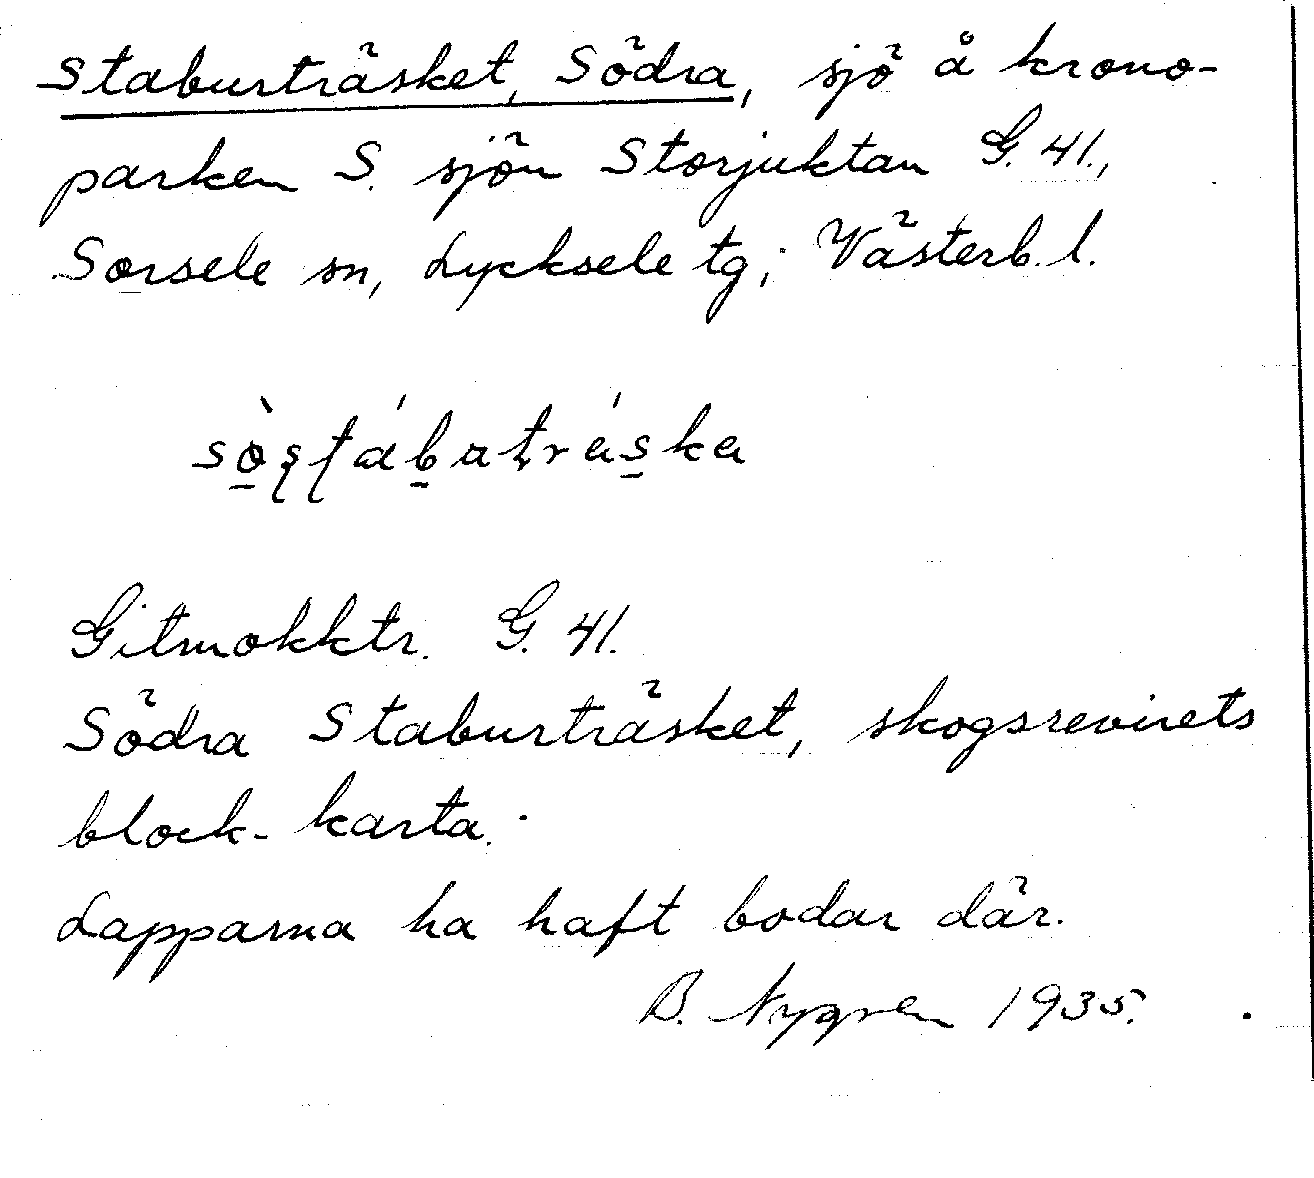 Staburträsket, Södra, sjö å krono-
parken S. sjön Storjuktan G. 41.,
Sorsele sn, Lycksele tg; Västerb. l.
Gitmokktr. G. 41.
Södra Staburträsket, skogsrevirets
block-karta.
Lapparna ha haft bodar där.
B. Nygren 1935.